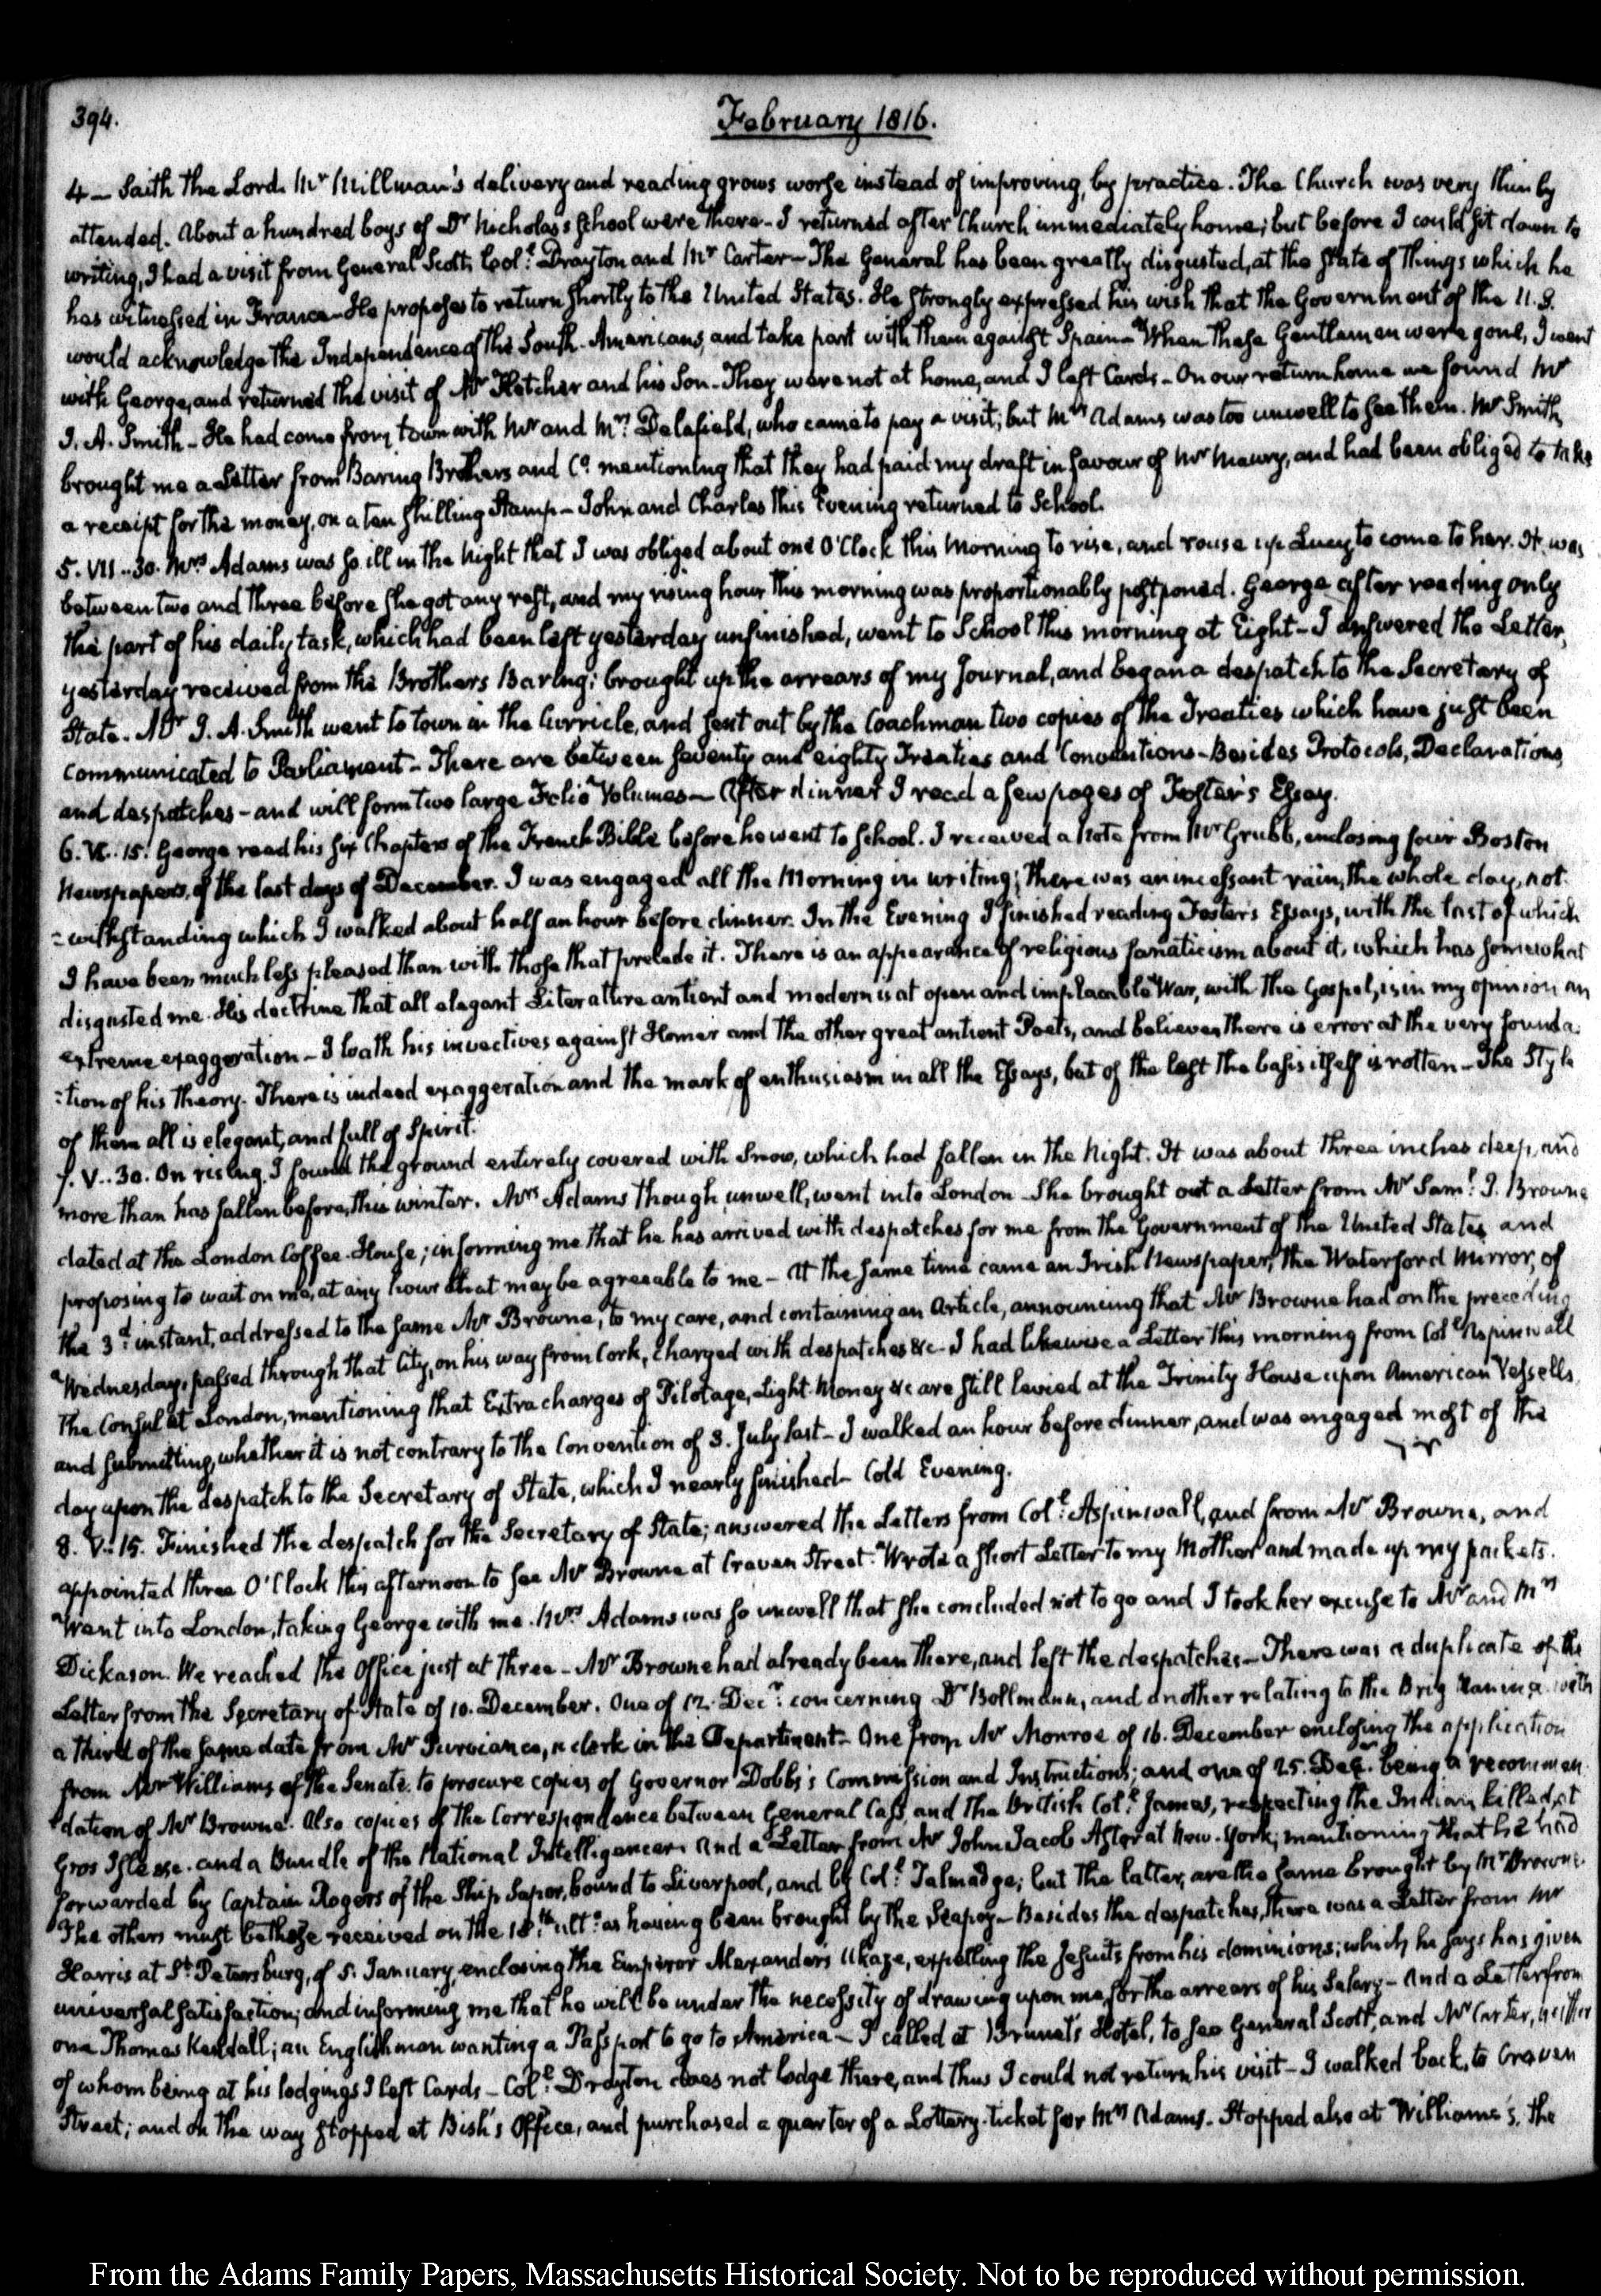 394.
February 1816.
4 — Saith the Lord. Mr Millman's delivery and reading grows worse instead of improving, by practice. The Church was very thinly
attended. About a hundred boys of Dr Nicholas's School were there — I returned after Church immediately home; but before I could sit down to
writing, I had a visit from General Scott, Colt. Drayton and Mr Carter — The General has been greatly disgusted, at the state of things which he
has witnessed in France — He proposes to return shortly to the United States. He strongly expressed his wish that the Government of the U.S.
would acknowledge the Independence of the South-Americans, and take part with them against Spain — When these Gentlemen were gone, I went
with George, and returned the visit of Mr Fletcher and his Son — They were not at home, and I left Cards — On our return home we found Mr
J. A. Smith — He had come from town with Mr and Mrs Delafield, who came to pay a visit; but Mrs Adams was too unwell to see them. Mr Smith
brought me a Letter from Baring Brothers and Co. mentioning that they had paid my draft in favour of Mr Maury, and had been obliged to take
a receipt for the money, on a ten shilling Stamp — John and Charles this Evening returned to School.
5. VII..30. Mrs Adams was so ill in the Night that I was obliged about one O'Clock this Morning to rise, and rouse up Lucy to come to her. It was
between two and three before she got any rest, and my rising hour this morning was proportionably postponed. George after reading only
the part of his daily task, which had been left yesterday unfinished, went to School this morning at Eight — I answered the Letter,
yesterday received from the Brothers Baring; brought up the arrears of my Journal, and began a despatch to the Secretary of
State. Mr J. A. Smith went to town in the Curricle, and sent out by the Coachman two copies of the Treaties which have just been
communicated to Parliament — There are between seventy and eighty Treaties and Conventions — Besides Protocols, Declarations,
and despatches — and will form two large Folio Volumes — After dinner I read a few pages of Foster's Essay.
6. VI..15. George read his six Chapters of the French Bible before he went to School. I received a Note from Mr Grubb, enclosing four Boston
Newspapers, of the last days of December. I was engaged all the Morning in writing; there was an incessant rain, the whole day, not
=withstanding which I walked about half an hour before dinner. In the Evening I finished reading Foster's Essays, with the last of which
I have been much less pleased than with those that precede it. There is an appearance of religious fanaticism about it, which has somewhat
disgusted me. His doctrine that all elegant Literature antient and modern is at open and implacable War, with the Gospel, is in my opinion an
extreme exaggeration — I loath his invectives against Homer and the other great antient Poets, and believe there is error at the very founda
=tion of his theory. There is indeed exaggeration and the mark of enthusiasm in all the Essays, but of the last the basis itself is rotten — The Style
of them all is elegant, and full of Spirit.
7. V..30. On rising I found the ground entirely covered with Snow, which had fallen in the Night. It was about three inches deep, and
more than has fallen before, this winter. Mrs Adams though unwell, went into London. She brought out a Letter from Mr Saml. J. Browne
dated at the London Coffee-House; informing me that he has arrived with despatches for me from the Government of the United States and
proposing to wait on me, at any hour that may be agreeable to me — At the same time came an Irish Newspaper, the Waterford Mirror, of
the 3d instant, addressed to the same Mr Browne, to my care, and containing an Article, announcing that Mr Browne had on the preceding
Wednesday, passed through that City, on his way from Cork, charged with despatches &c — I had likewise a Letter this morning from Colt Aspinwall
the Consul at London, mentioning that Extra charges of Pilotage, Light-Money &c are still levied at the Trinity House upon American Vessells,
and submitting, whether it is not contrary to the Convention of 3. July last — I walked an hour before dinner, and was engaged most of the
day upon the despatch to the Secretary of State, which I nearly finished — Cold Evening.
8. V..15. Finished the despatch for the Secretary of State; answered the Letters from Colt. Aspinwall, and from Mr Browne, and
appointed three O'Clock this afternoon to see Mr Browne at Craven Street. Wrote a short Letter to my Mother and made up my packets.
Went into London, taking George with me. Mrs Adams was so unwell that she concluded not to go and I took her excuse to Mr and Mrs
Dickason. We reached the Office just at three — Mr Browne had already been there, and left the despatches — There was a duplicate of the
Letter from the Secretary of State of 10. December. One of 12. Decr. concerning Dr Bollmann, and another relating to the Brig with
a third of the same date from Mr Purviance, a clerk in the Department — One from Mr Monroe of 16. December enclosing the application
from Mr Williams of the Senate, to procure copies of Governor Dobbs's Commission and Instructions; and one of 25. Decr. being a recommen
dation of Mr Browne. Also copies of the Correspondence between General Cass, and the British Colt. James, respecting the Indian killed, at
Gros Isle &c. and a Bundle of the National Intelligencer. And a Letter from Mr John Jacob Astor at New-York, mentioning that he had
forwarded by Captain Rogers of the Ship bound to Liverpool, and by Colt. Talmadge; but the latter, are the same brought by Mr Browne.
The others must be those received on the 18th ulto. as having been brought by the Seapoy — Besides the despatches, there was a Letter from Mr
Harris at St. Petersburg, of 5. January, enclosing the Emperor Alexander's Ukaze, expelling the Jesuits from his dominions; which he says has given
universal satisfaction; and informing me that he will be under the necessity of drawing upon me for the arrears of his Salary — And a Letter from
one Thomas Kendall; an Englishman wanting a Passport to go to America — I called at Brunet's Hotel, to see General Scott, and Mr Carter, neither
of whom being at his lodgings I left Cards — Colt. Drayton does not lodge there, and thus I could not return his visit — I walked back, to Craven
Street; and on the way stopped at Bish's Office, and purchased a quarter of a Lottery-ticket for Mrs Adams. Stopped also at Williams's, the
From the Adams Family Papers, Massachusetts Historical Society. Not to be reproduced without permission.